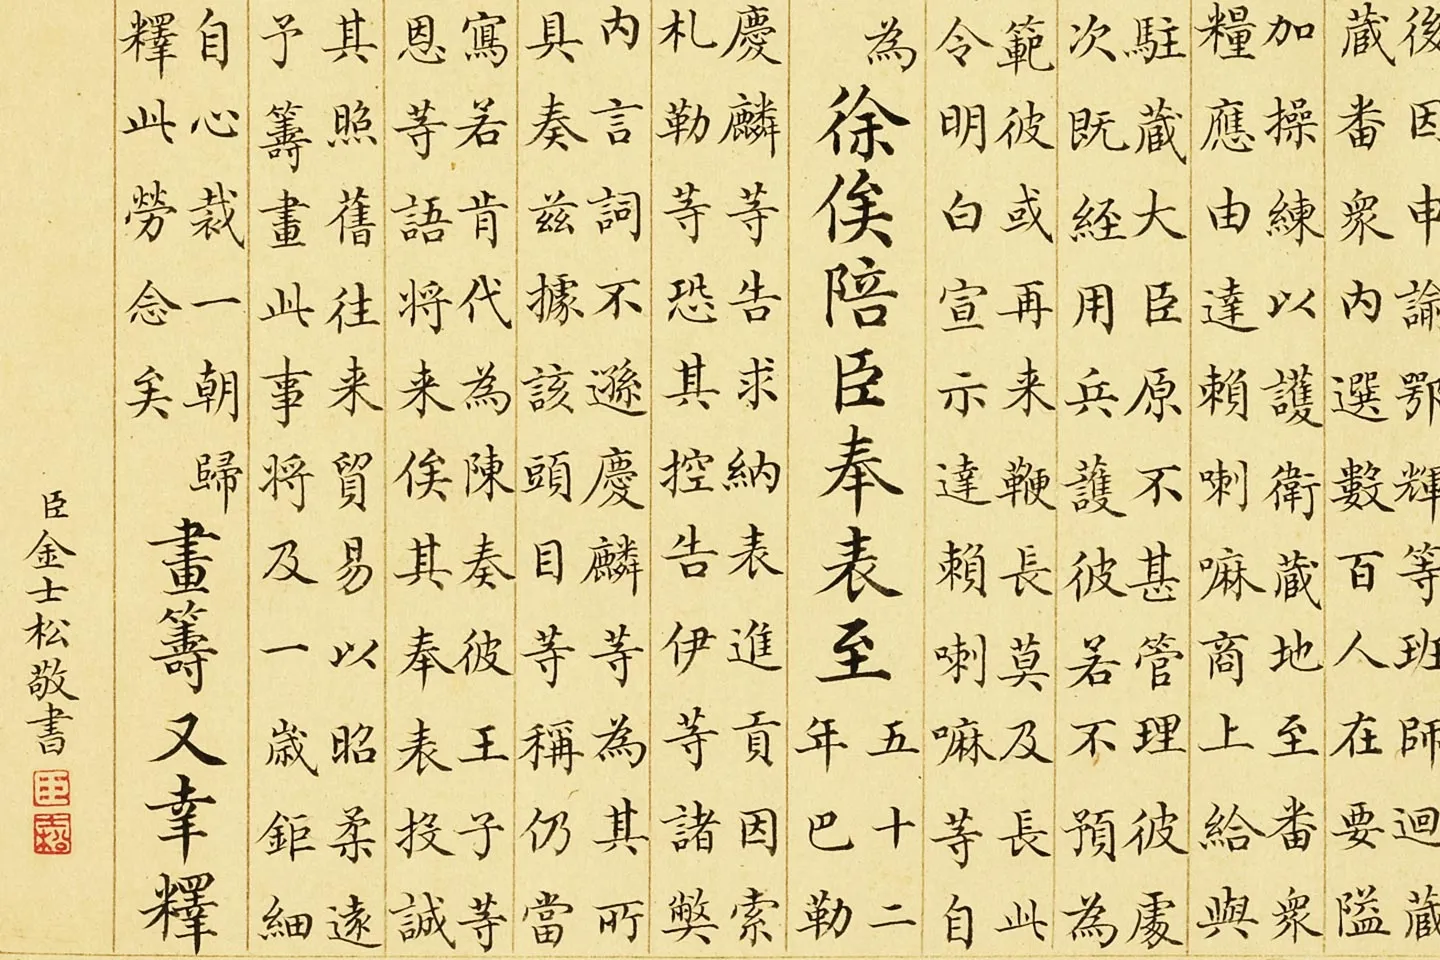 後因申諭鄂輝等班師迴藏
藏番眾內選數百人在要隘
加操練以護衛藏地至番眾
糧應由達賴喇嘛商上給與
駐藏大臣原不甚管理彼處
次既經用兵護彼若不預為
範彼或再来鞭長莫及長此
令明白宣示達賴喇嘛等自
為
徐俟陪臣奉表至
五十二
年巴勒
慶麟等告求納表進貢因索
札勒等恐其控告伊等諸獘
内言詞不遜慶麟等為其所
具奏茲據該頭目等稱仍當
寫若肯代為陳奏彼王子等
恩等語将来俟其奉表投誠
其照舊往来貿易以昭柔遠
予籌畫此事将及一歲鉅細
自心裁一朝歸
釋此勞念矣
畫籌又幸釋
臣金士松敬書
臣
士松